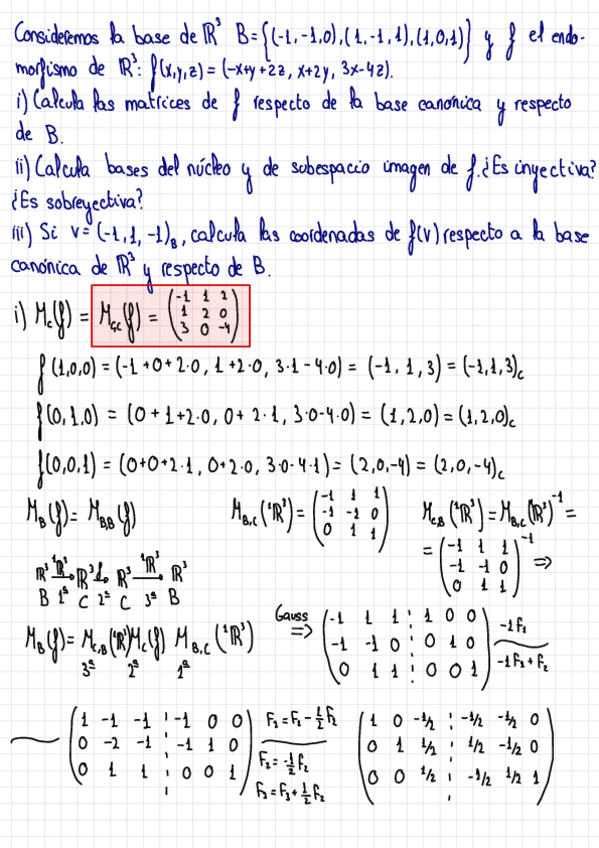 Consideremos la base de ℝ³ B={(-1,-1,0),(1,-1,1),(1,0,1)} y f el endo-
morfismo de ℝ³: f(x,y,z)=(-x+y+2z, x+2y, 3x-4z).
i) Calcula las matrices de f respecto de la base canónica y respecto
de B.
ii) Calcula bases del núcleo y de subespacio imagen de f. ¿Es inyectiva?
¿Es sobreyectiva?
iii) Si v=(-1,1,-1)_B, calcula las coordenadas de f(v) respecto a la base
canónica de ℝ³ y respecto de B.
i) M_C(f) = M_{C,C}(f) = (-1 1 2
1 2 0
3 0 -4)
f(1,0,0) = (-1+0+2·0, 1+2·0, 3·1-4·0) = (-1,1,3) = (-1,1,3)_C
f(0,1,0) = (0+1+2·0, 0+2·1, 3·0-4·0) = (1,2,0) = (1,2,0)_C
f(0,0,1) = (0+0+2·1, 0+2·0, 3·0-4·1) = (2,0,-4) = (2,0,-4)_C
M_B(f) = M_{BB}(f) M_{B,C}(¹ℝ³) = (-1 1 1
-1 -1 0
0 1 1) M_{C,B}(¹ℝ³) = M_{B,C}(¹ℝ³)⁻¹ =
= (-1 1 1
-1 -1 0
0 1 1)⁻¹ ⇒
ℝ³ →¹ℝ³ ℝ³ →f ℝ³ →¹ℝ³ ℝ³
B 1ª C 2ª C 3ª B
M_B(f) = M_{C,B}(¹ℝ³) M_C(f) M_{B,C}(¹ℝ³)
3ª 2ª 1ª
Gauss ⇒
(-1 1 1 ⋮ 1 0 0
-1 -1 0 ⋮ 0 1 0
0 1 1 ⋮ 0 0 1)
-1F₁
-1F₁+F₂
(1 -1 -1 ⋮ -1 0 0
0 -2 -1 ⋮ -1 1 0
0 1 1 ⋮ 0 0 1)
F₁=F₁-½F₂
F₂=-½F₂
F₃=F₃+½F₂
(1 0 -1/2 ⋮ -1/2 -1/2 0
0 1 1/2 ⋮ 1/2 -1/2 0
0 0 1/2 ⋮ -1/2 1/2 1)